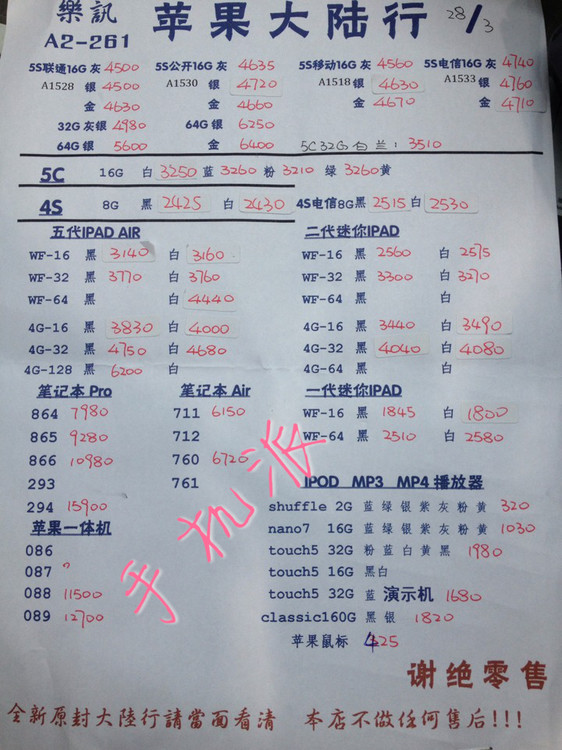 樂訊 苹果大陆行 28/3
A2-261
5S联通16G 灰 4500 5S公开16G 灰 4635 5S移动16G 灰 4560 5S电信16G 灰 4740
A1528 银 4500 A1530 银 4720 A1518 银 4630 A1533 银 4760
金 4630 金 4660 金 4670 金 4710
32G 灰银 4980 64G 银 6250
64G 银 5600 金 6400 5C 32G 白 兰: 3510
5C 16G 白 3250 蓝 3260 粉 3210 绿 3260 黄
4S 8G 黑 2425 白 2430 4S电信8G 黑 2515 白 2530
五代IPAD AIR 二代迷你IPAD
WF-16 黑 3140 白 3160 WF-16 黑 2560 白 2575
WF-32 黑 3770 白 3760 WF-32 黑 3300 白 3270
WF-64 黑 白 4440 WF-64 黑 白
4G-16 黑 3830 白 4000 4G-16 黑 3440 白 3490
4G-32 黑 4750 白 4680 4G-32 黑 4040 白 4080
4G-128 黑 6200 白 4G-64 黑 白
笔记本 Pro 笔记本 Air 一代迷你IPAD
864 7980 711 6150 WF-16 黑 1845 白 1800
865 9280 712 WF-64 黑 2510 白 2580
866 10980 760 6720
293 761 IPOD MP3 MP4 播放器
294 15900 shuffle 2G 蓝 绿 银 紫 灰 粉 黄 320
苹果一体机 nano7 16G 蓝 绿 银 紫 灰 粉 黄 1030
086 touch5 32G 粉 蓝 白 黄 黑 1980
087 touch5 16G 黑白
088 11500 touch5 32G 蓝 演示机 1680
089 12700 classic160G 黑 银 1820
苹果鼠标 425
手机派
谢绝零售
全新原封大陆行請當面看清 本店不做任何售后!!!